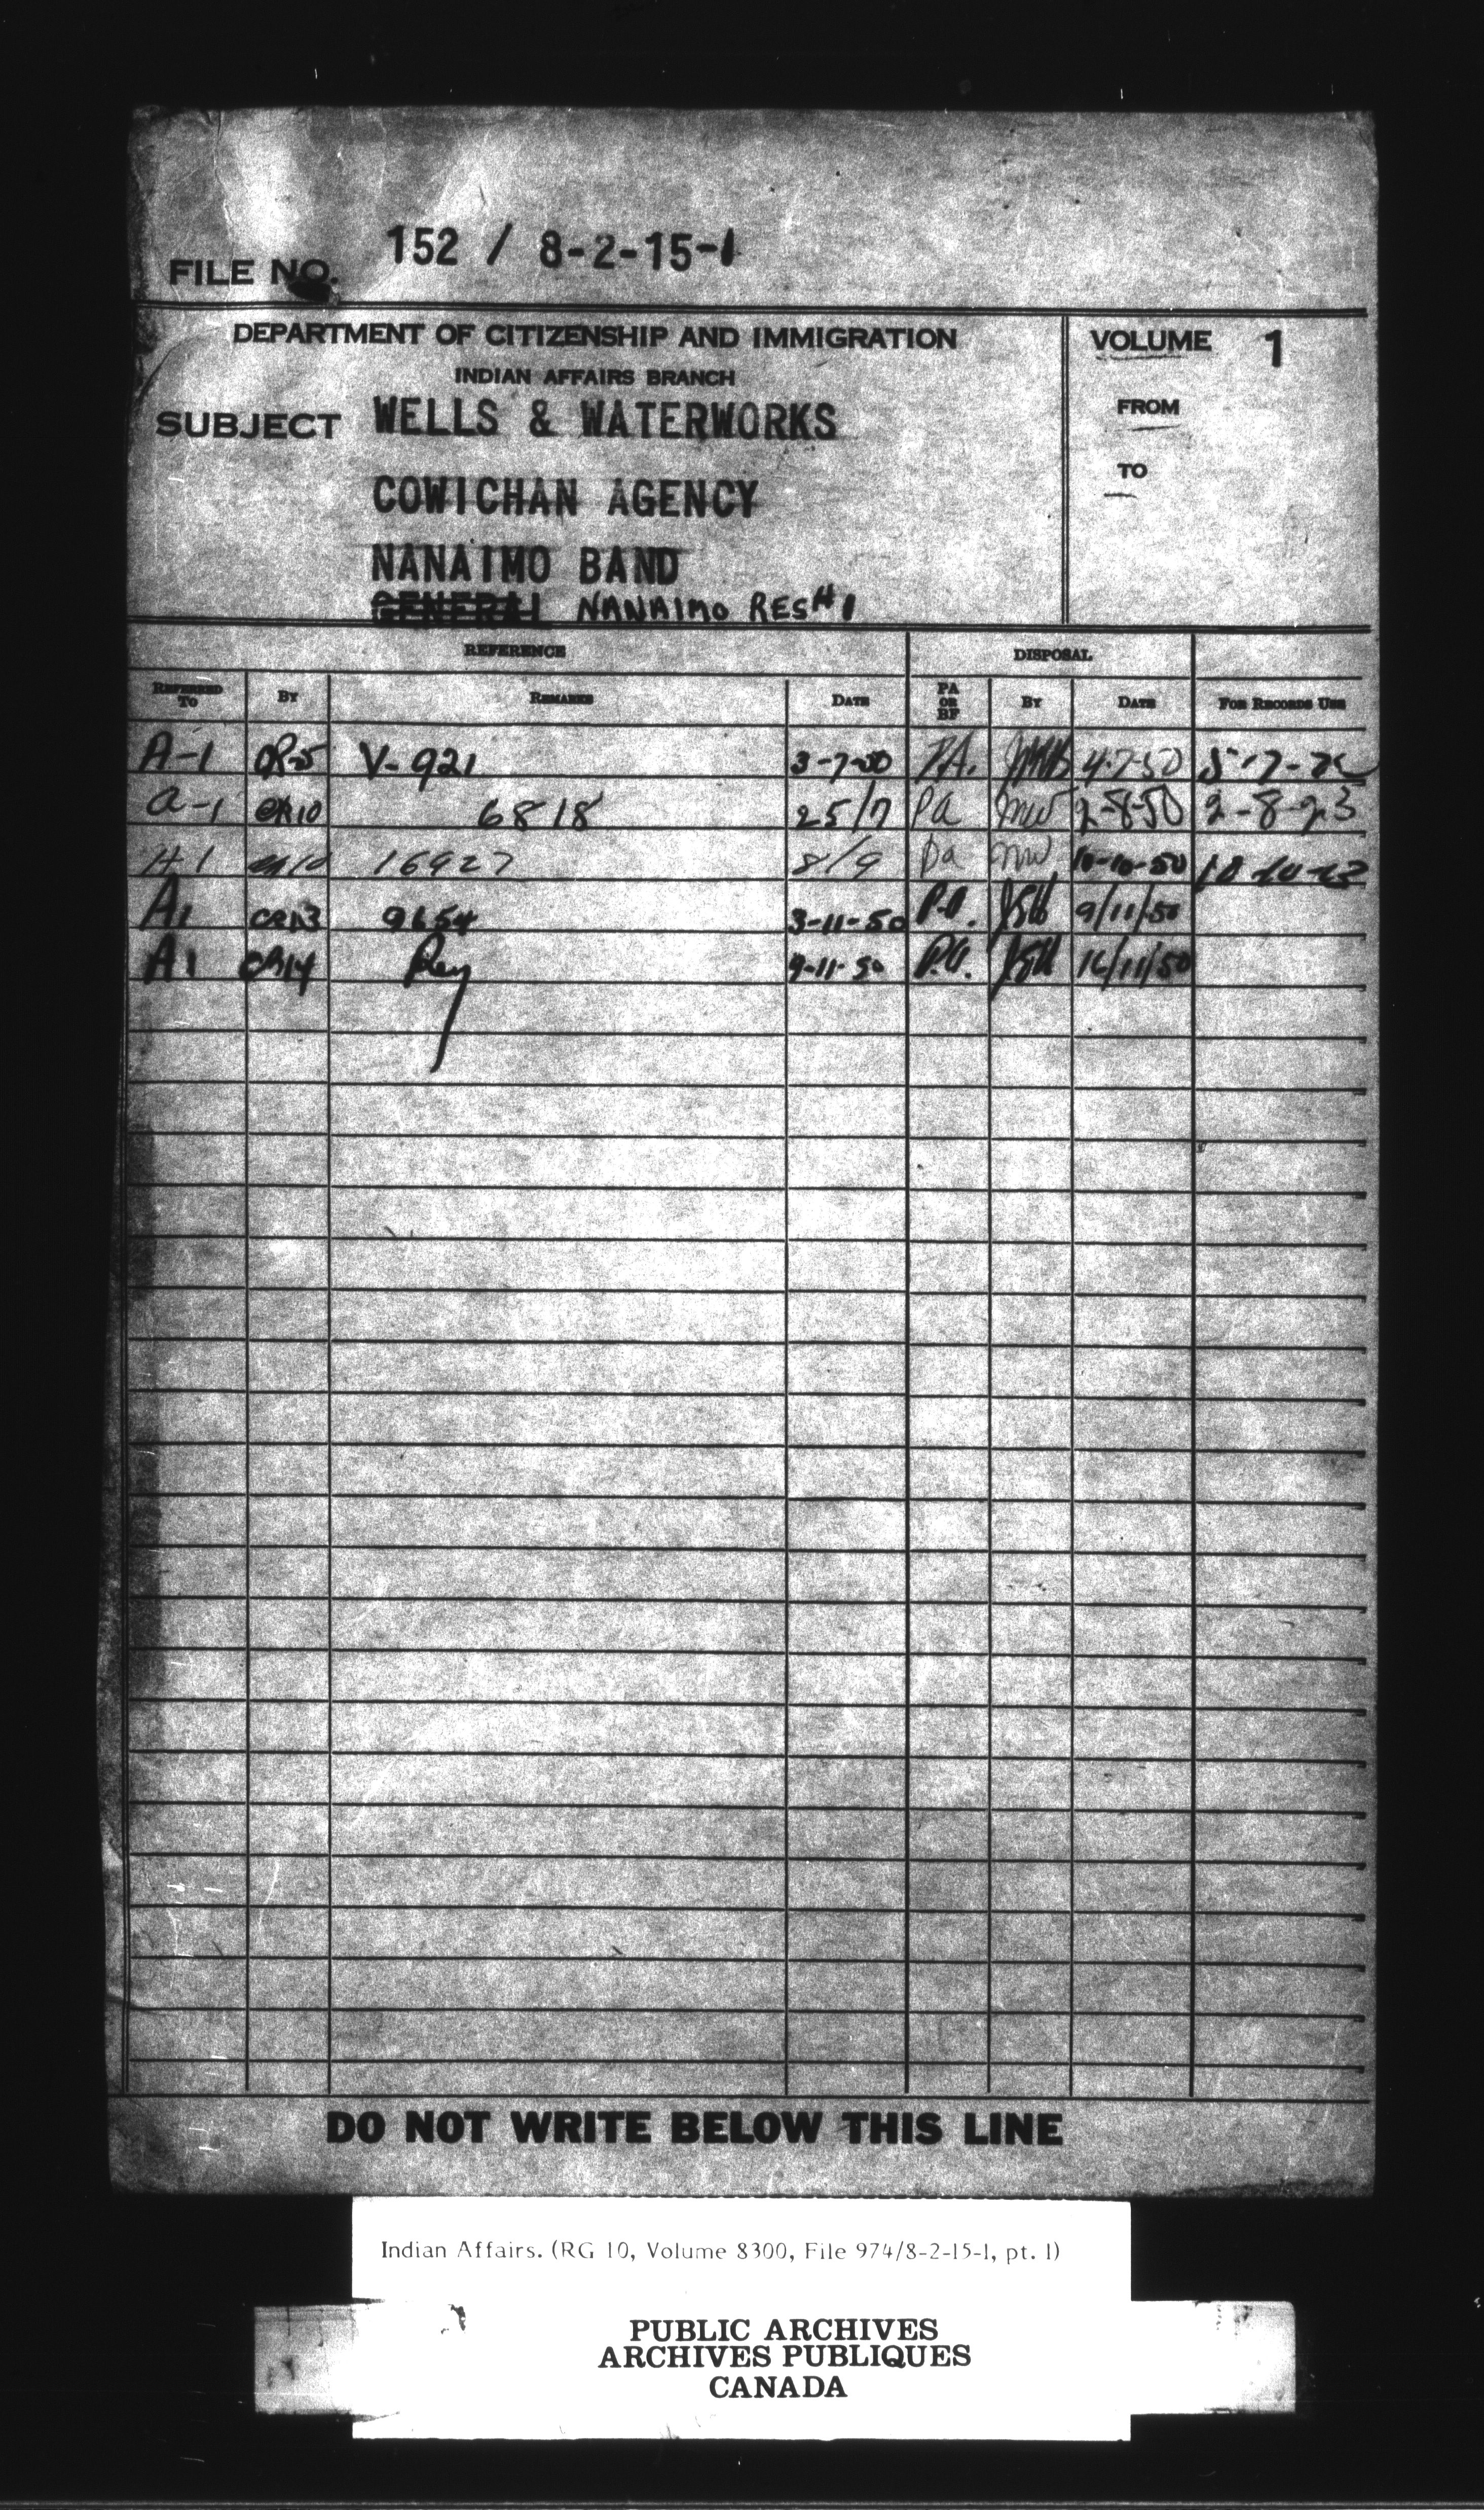 FILE NO. 152 / 8-2-15-1
DEPARTMENT OF CITIZENSHIP AND IMMIGRATION
INDIAN AFFAIRS BRANCH
VOLUME 1
FROM
TO
SUBJECT WELLS & WATERWORKS
COWICHAN AGENCY
NANAIMO BAND
GENERAL NANAIMO RES #1
REFERENCE DISPOSAL
REFERRED TO BY REMARKS DATE PA OR BF BY DATE FOR RECORDS USE
A-1 CR5 V-921 3-7-50 P.A. 4-7-50
a-1 CR10 6818 25/7 Pa mw 2-8-50 2-8-23
A1 CR10 16927 8/9 Pa mw 10-10-50
A1 CR13 9654 3-11-50 P.A. 9/11/50
A1 CR14 9-11-50 P.A. 16/11/50
DO NOT WRITE BELOW THIS LINE
Indian Affairs. (RG 10, Volume 8300, File 974/8-2-15-1, pt. 1)
PUBLIC ARCHIVES
ARCHIVES PUBLIQUES
CANADA